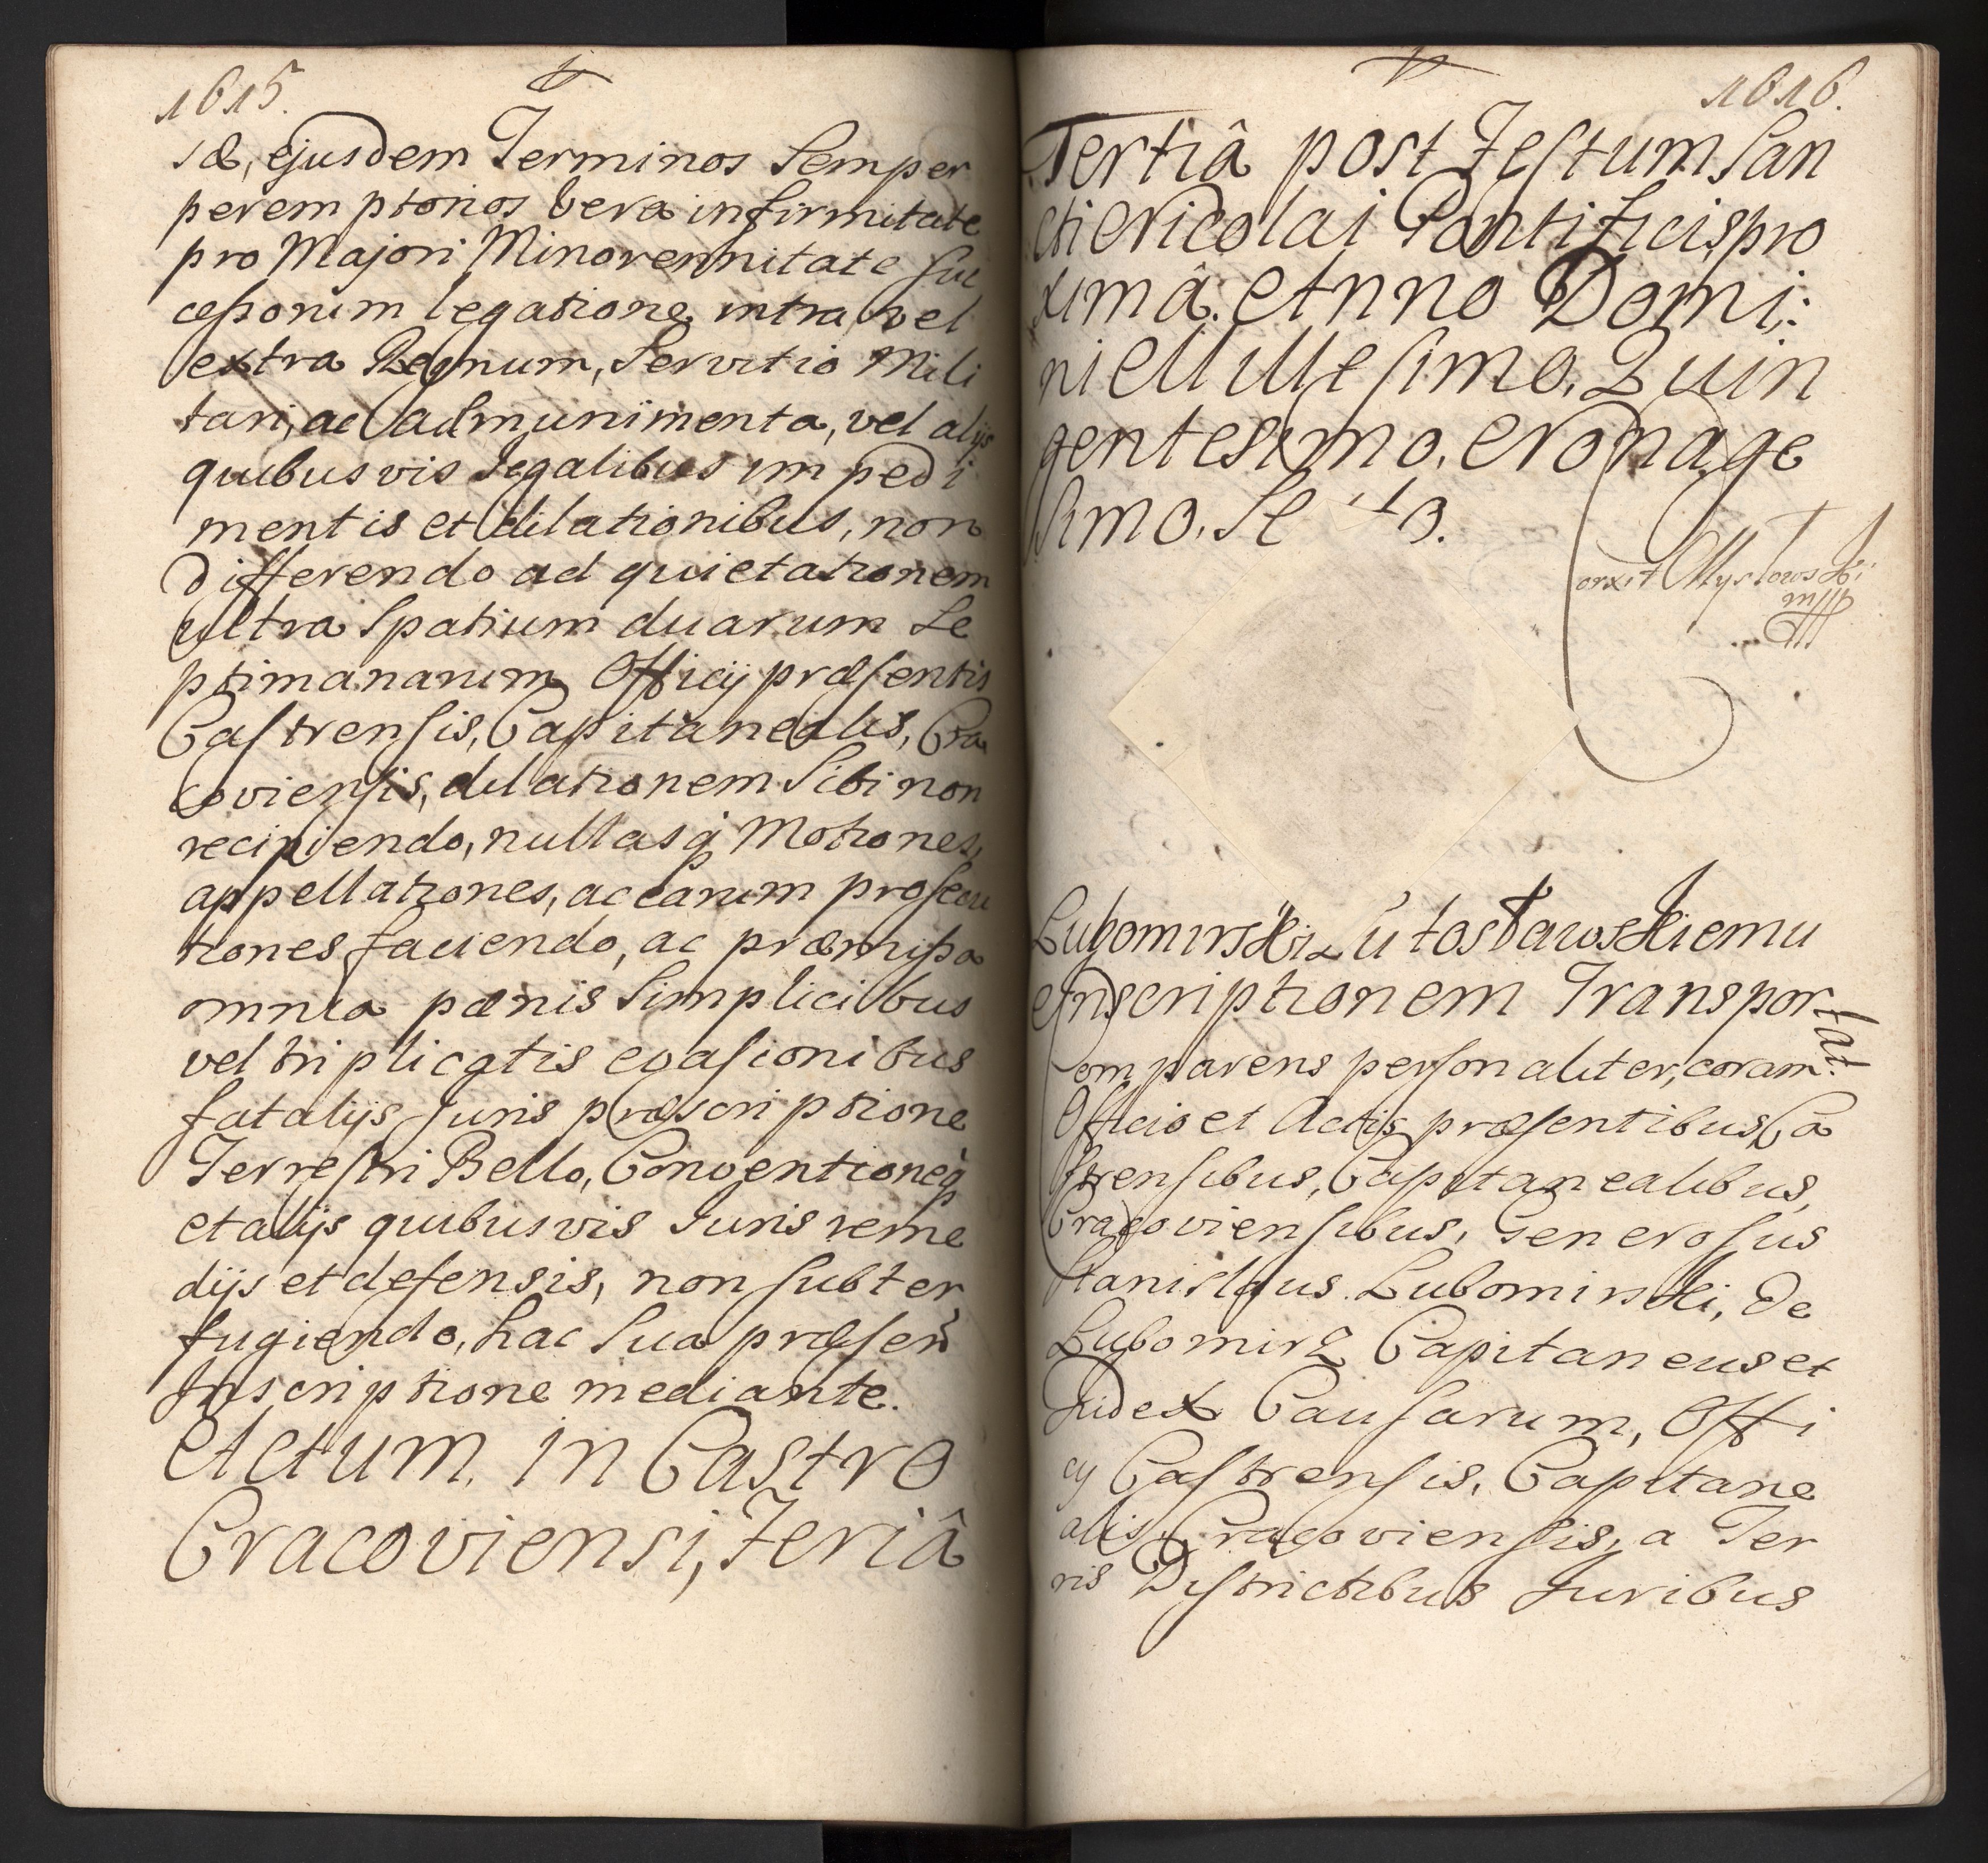 1615.
sæ, ejusdem Terminos Semper
peremptorios vera infirmitate
pro Majori Minorennitate suc
cessorum legatione, intra, vel
extra Regnum, Servitio Mili
tari, ac ad munimenta, vel alijs
quibusvis Legalibus impedi
mentis et dilationibus, non
differendo ad quietationem
ultra Spatium duarum Se
ptimanarum Officij præsentis
Castrensis, Capitanealis, Cra
coviensis, dilationem Sibi non
recipiendo, nullasq Motiones,
appellationes, ac earum prosecu
tiones faciendo, ac præmissa
omnia pænis Simplicibus
vel triplicatis evasionibus
fatalijs Juris præscriptione
Terrestri Bello, Conventioneq
et alijs quibusvis Juris reme
dijs et defensis, non subter
fugiendo, hac Sua præsen
Inscriptione mediante.
Actum in Castro
Cracoviensi, Feriâ
1616.
Tertiâ post Festum San
cti Nicolai Pontificis pro
ximâ. Anno Domi:
ni Millesimo, Quin
gentesimo, Nonage
simo, Se
Lubomirski Lutosławskiemu
Inscriptionem Transpor
tat
Comparens personaliter, coram
Officio et Actis præsentibus Ca
strensibus, Capitanealibus,
Cracoviensibus, Generosus
Stanislaus Lubomirski, de
Lubomirz Capitaneus et
Judex Causarum, Offi
cij Castrensis, Capitane
alis, Cracoviensis, a Ter
ris Districtibus Juribus